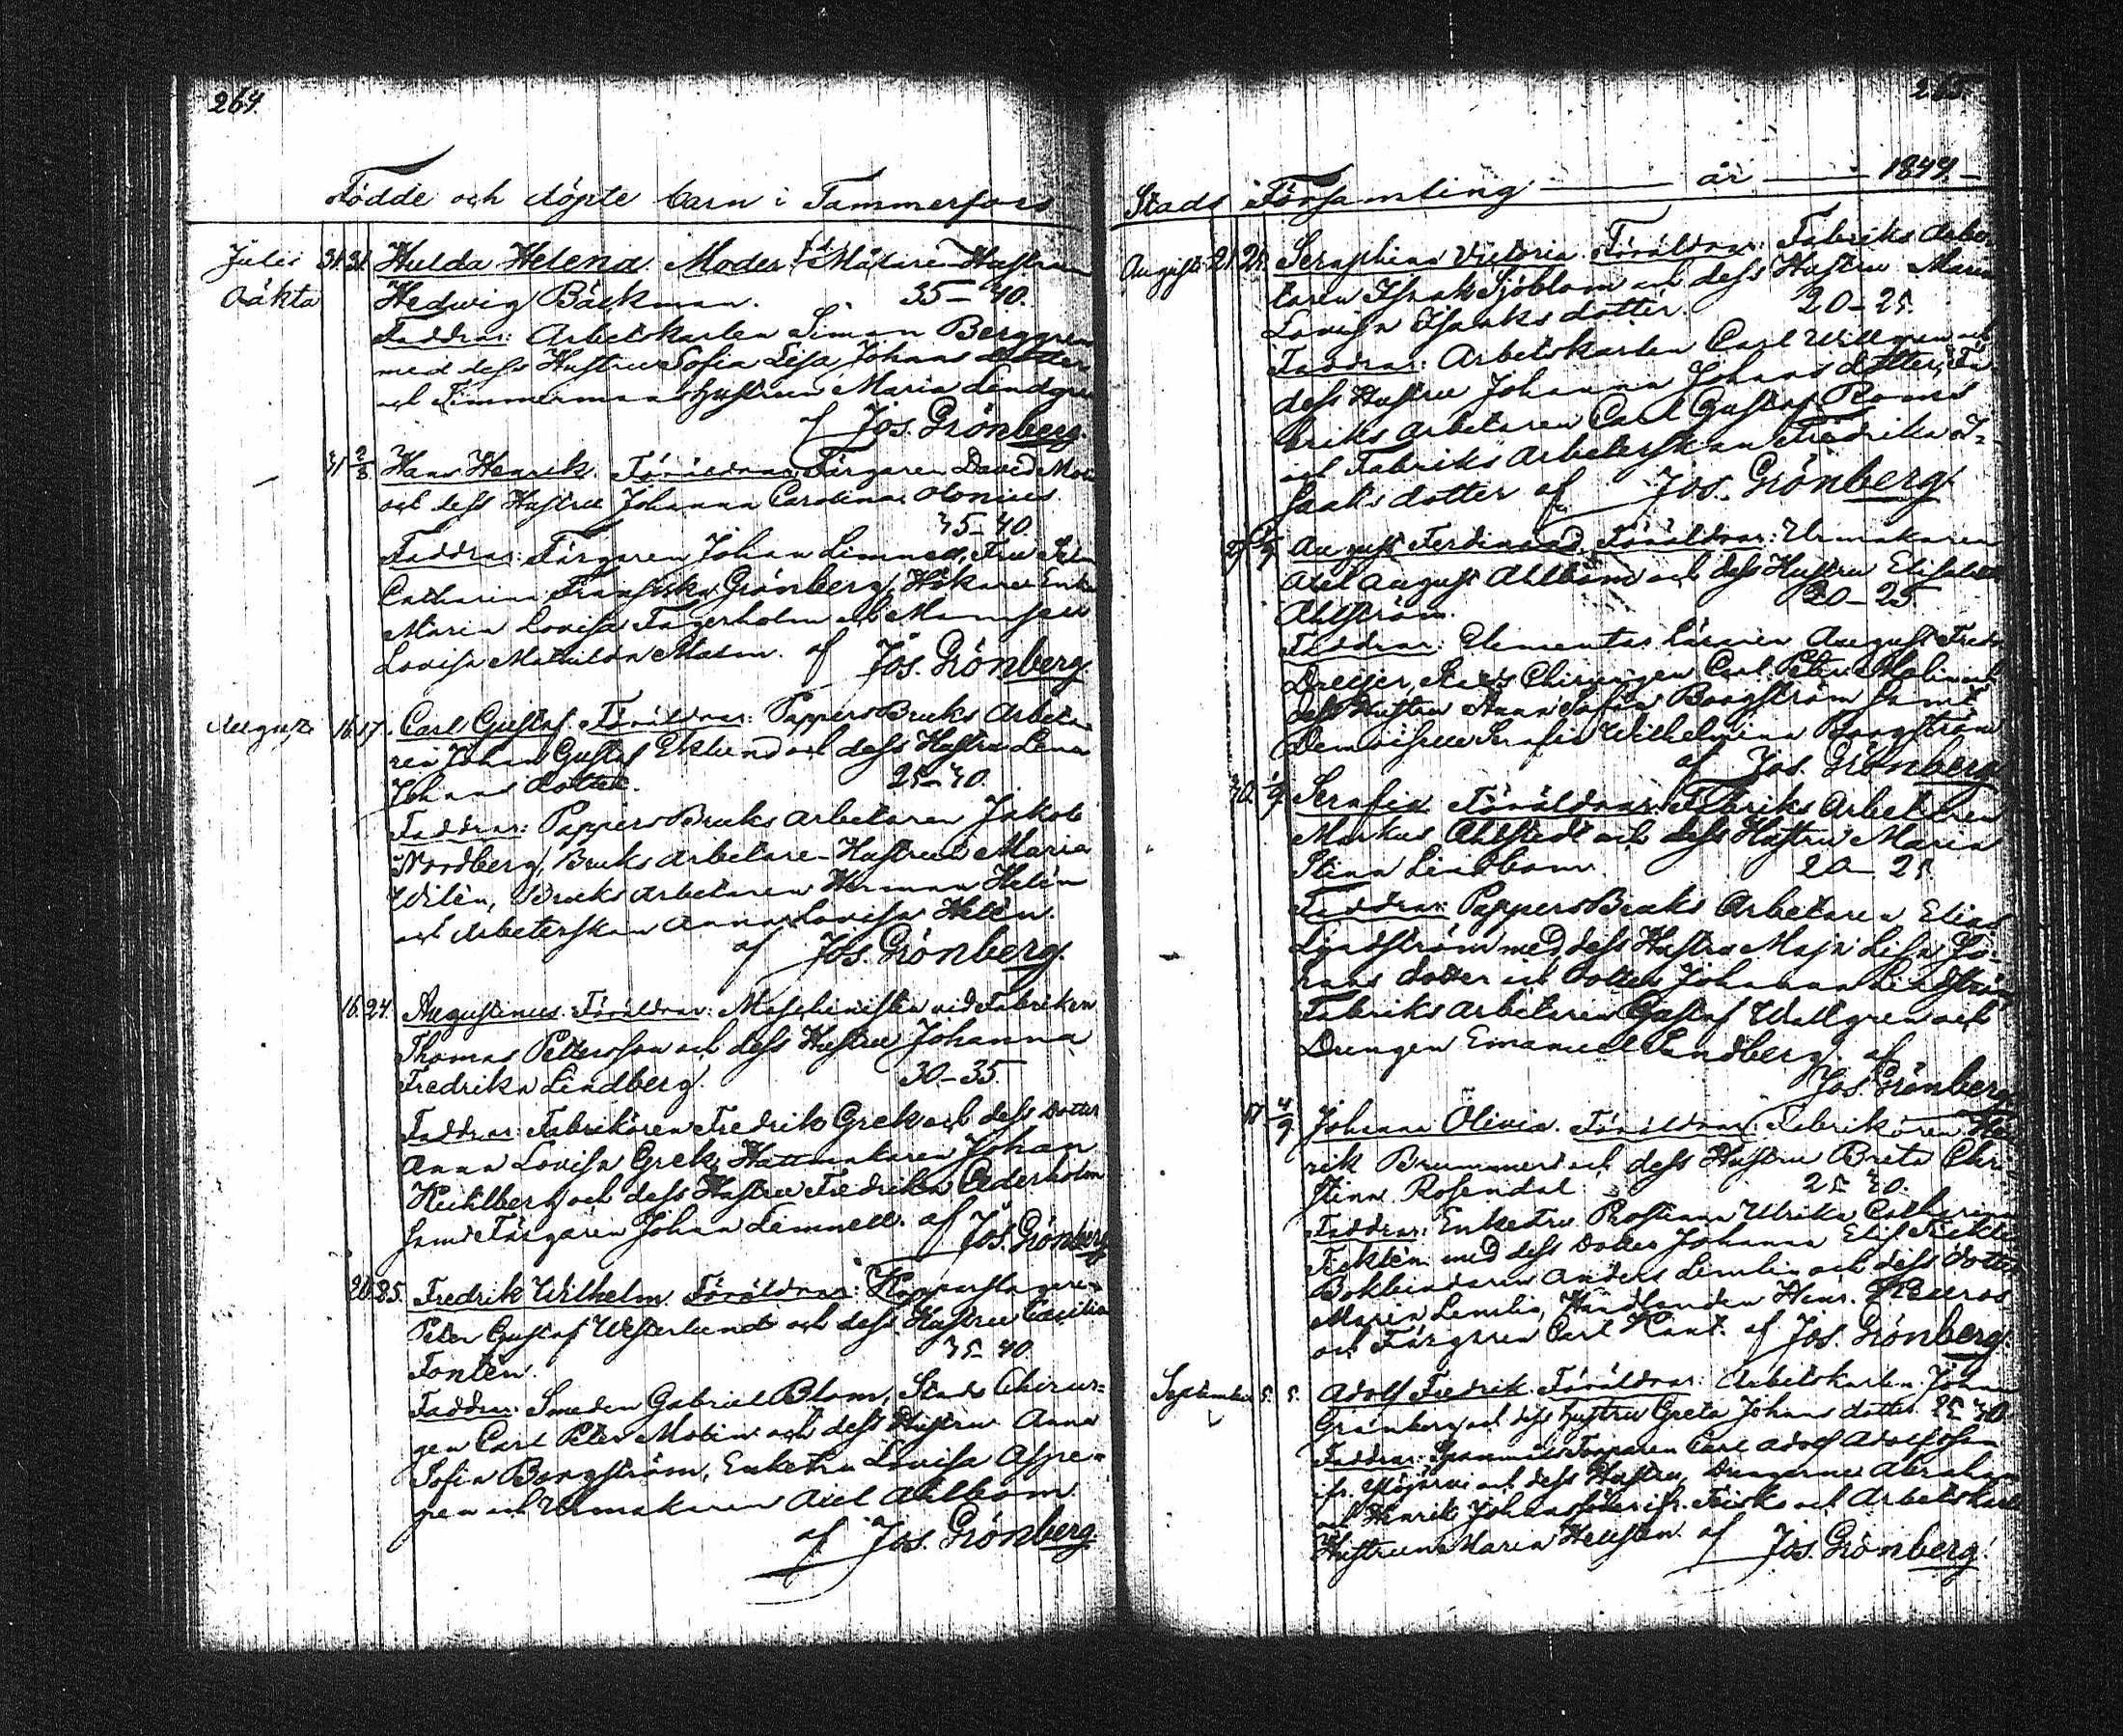 264.
Födde och döpte barn i Tammerfors
Julii 31. 31. Hulda Helena. Moder: Målare Hustrun
Oäkta Hedwig Bäckman. 35–40.
Faddrar: Arbetskarlen Simon Berggren
med dess Hustru Sofia Lisa Johans dotter
och Timmermans hustrun Maria Lindgren
af Jos. Grönberg.
31 2/8 Hans Henrik. Föräldrar: Färgaren David
och dess Hustru Johanna Carolina Olonius
35–40.
Faddrar: Färgaren Johan Limnell, Fru
Catharina Fransiska Grönberg, Hökare Enk
Maria Lovisa Fagerholm och Mamsell
Lovisa Mathilda Malm. af Jos. Grönberg
Augusti 16. 17. Carl Gustaf. Föräldrar: PappersBruks Arbeta
ren Johan Gustaf Eklund och dess Hustru Lena
Johans dotter. 25–30.
Faddrar: PappersBruks arbetaren Jakob
Nordberg, Bruks arbetare-Hustrun Maria
Wilén, Bruks arbetaren Herman Helén
och Arbeterskan Anna Lovisa Helén.
af Jos. Grönberg.
16. 24. Augustinus. Föräldrar: Maschinisten vid Fabriken
Thomas Pettersson och dess Hustru Johanna
Fredrika Lindberg. 30–35.
Faddrar: Fabrikören Fredrik Grek och dess Dotter
Anna Lovisa Grek, Hattmakaren Johan
Kuhlberg och dess Hustru Fredrika Cederholm
samt Färgaren Johan Limnell. af Jos. Grönberg
20. 25. Fredrik Wilhelm. Föräldrar: Kopparslagaren
Peter Gustaf Westerlund och dess Hustru Cecilia
35–40
Tontén.
Faddrar: Smeden Gabriel Blom, Stads Chirur=
gen Carl Peter Molin och dess Hustru Anna
Sofia Borgström, Enkefru Lovisa Aspe=
gren och Urmakaren Axel Ahlbom
af Jos. Grönberg.
265.
Stads Församling år 1849.
Augusti 21. 21. Seraphina Victoria. Föräldrar: Fabriks Arbe
taren Isaak Sjöblom och dess Hustru Maria
Lovisa Isaaks dotter. 20–25.
Faddrar: Arbetskarlen Carl Willgren och
dess Hustru Johanna Johans dotter, Fa
briks arbetaren Carl Gustaf Roms
och Fabriks Arbeterskan Fredrika I=
saaks dotter af Jos. Grönberg.
August Ferdinand. Föräldrar: Urmakaren
Axel August Ahlbom och dess Hustru Elisabeth
Ahlström. 20–25
Faddrar: Elementar Läraren August Fredr
Dreijer, Stads Chirurgen Carl Peter Molin och
dess Hustru Anna Sofia Borgström samt
Demoiselle Serafia Wilhelmina Borgström
af Jos. Grönberg
30. Serafia. Föräldrar: Fabriks Arbetaren
Markus Ahlstedt och dess Hustru Maria
Stina Lindbom. 20–25
Faddrar: PappersBruks Arbetaren Elias
Lindström med dess Hustru Maja Lisa Jo=
hans dotter och dotter Johanna Lindström,
Fabriks arbetaren Gustaf Wallgren och
Drengen Emanuel Sandberg. af
Jos. Grönberg
31 4/9 Johanna Olivia. Föräldrar: Fabrikören Hen
rik Brummer och dess Hustru Breta Chri
stina Rosendal 25 30.
Faddrar: Enkefru Prostinna Ulrika Catharina
med dess Dotter Johanna
Bokbindaren Anders Lemlin och dess dotter
Maria Lemlin, Handlanden Henr.
och Färgaren Carl Kant. af Jos. Grönberg.
September 5. 5. Adolf Fredrik. Föräldrar: Arbetskarlen Johan
Grönberg och dess hustru Greta Johans dotter 25 30
Faddrar: Carl Adolf Adolfsson
ifr. Ylöjärvi och dess Hustru, Drengarne Abraham
och Henrik Johanssöner ifr. och Arbetskarls
Hustrun Maria Hellsten. af Jos. Grönberg.